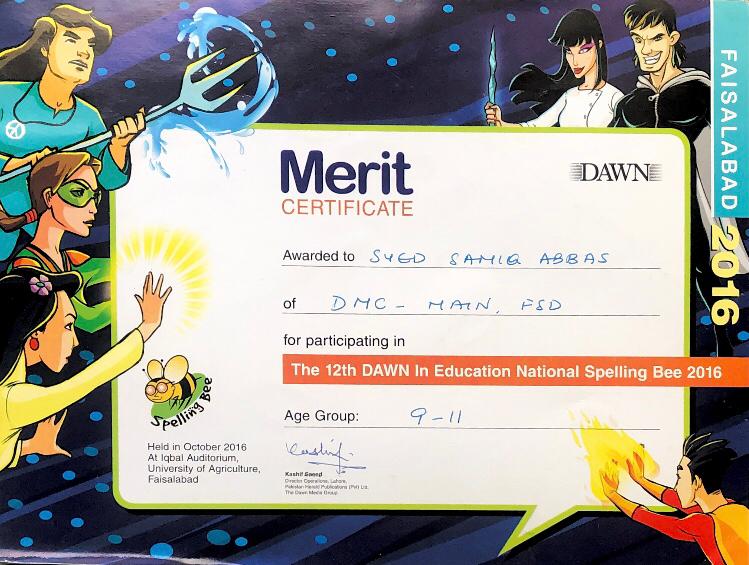 Merit
CERTIFICATE
DAWN
FAISALABAD 2016
Awarded to SYED SAMIQ ABBAS
of DMC - MAIN, FSD
for participating in
The 12th DAWN In Education National Spelling Bee 2016
Age Group: 9-11
Spelling Bee
Held in October 2016
At Iqbal Auditorium,
University of Agriculture,
Faisalabad
Kashif
Kashif Saeed
Director Operations, Lahore,
Pakistan Herald Publications (Pvt) Ltd.
The Dawn Media Group